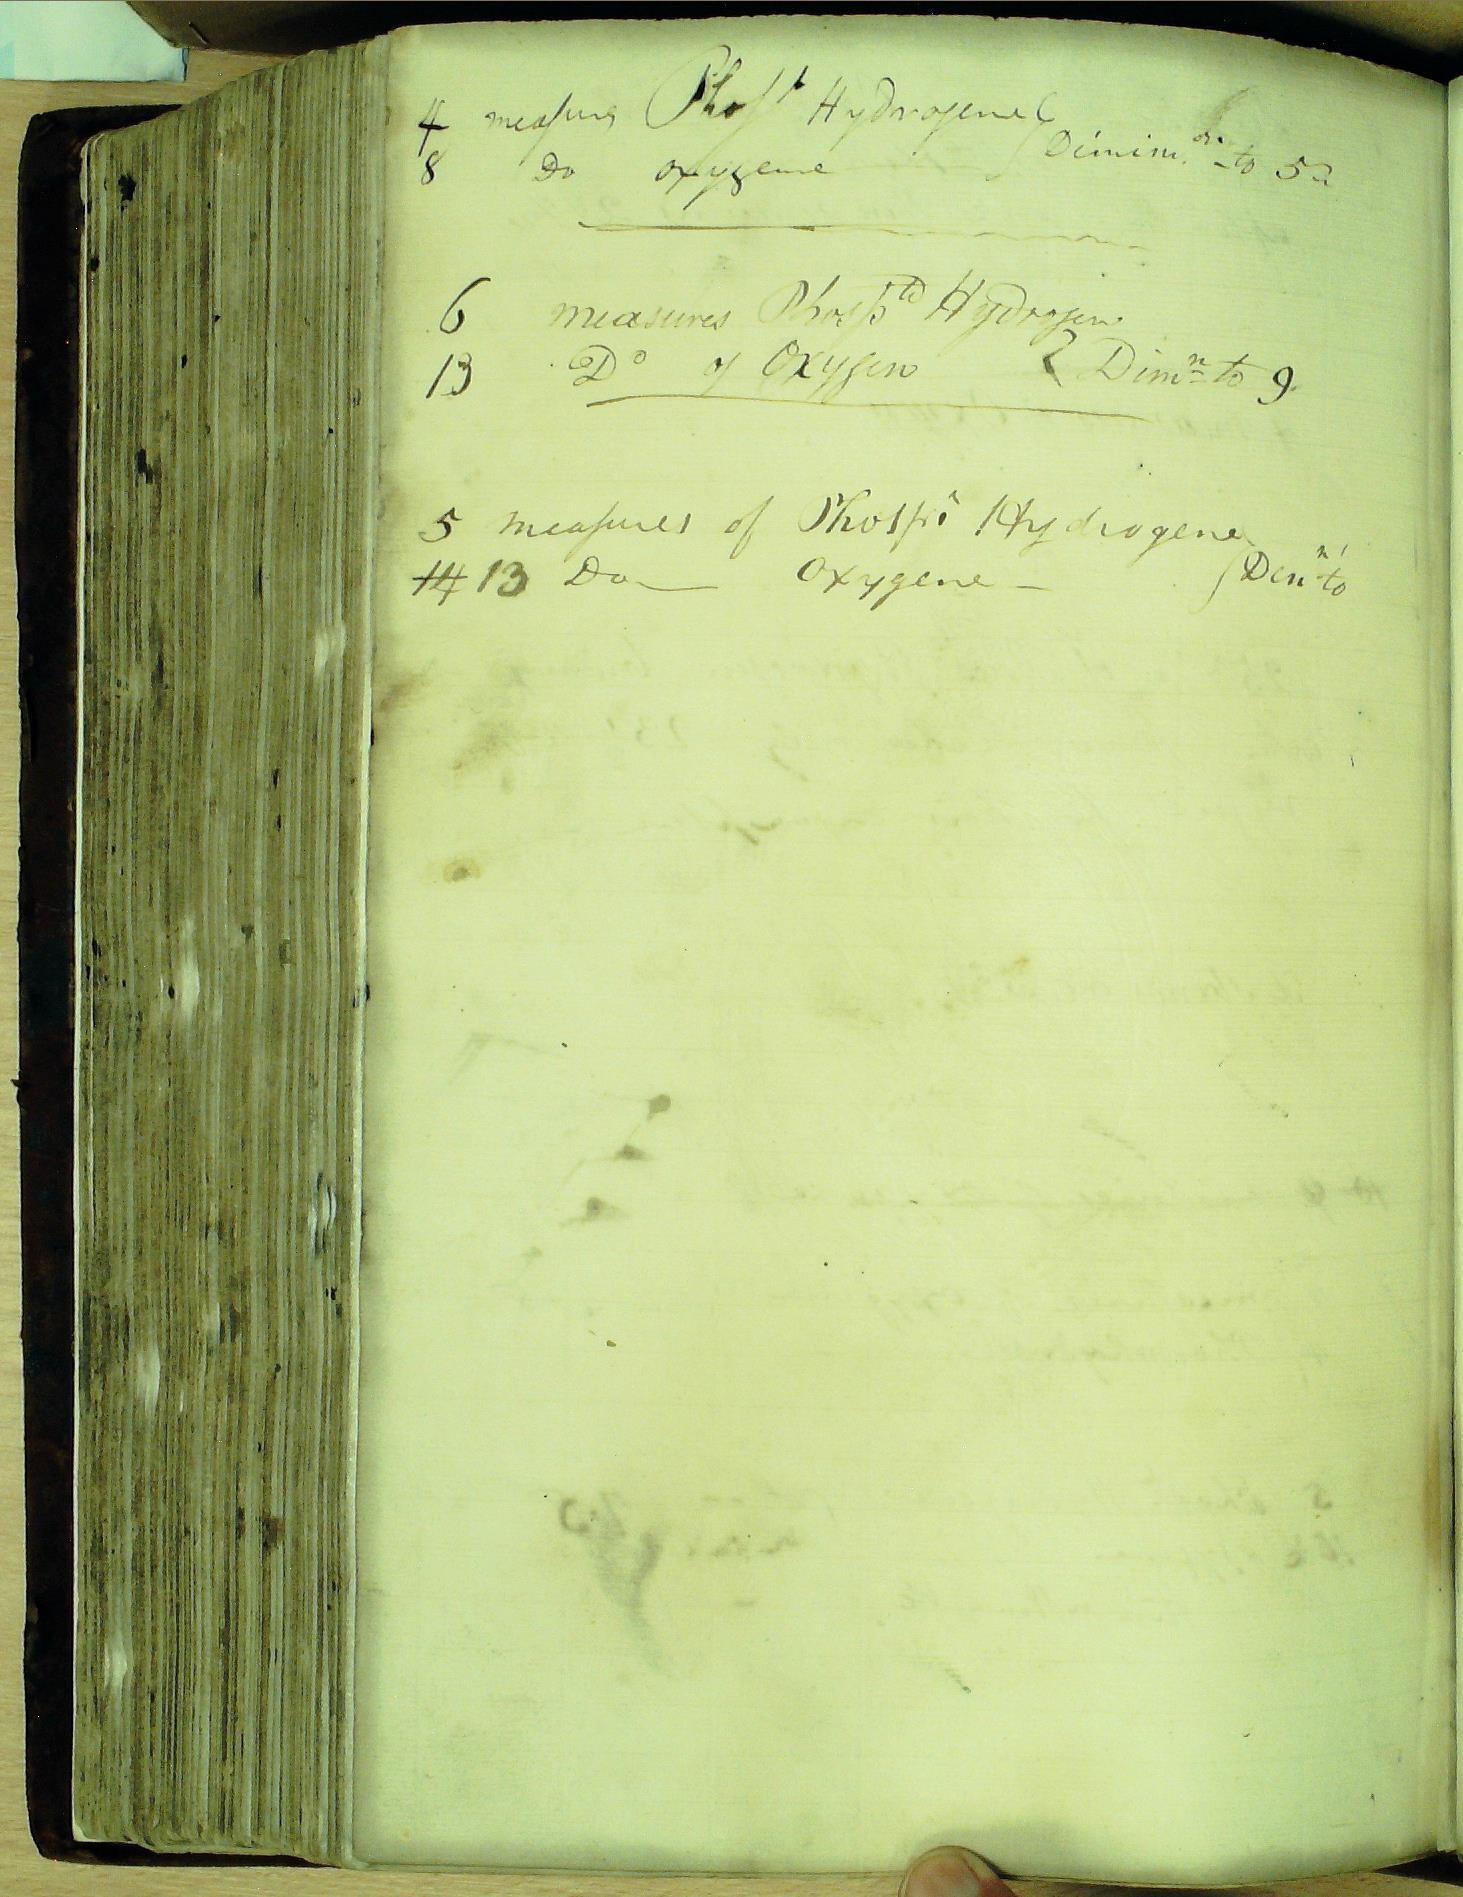 4 measures Phos.d Hydrogene
8 Do oxygene } Diminon to 5
6 measures Phospd Hydrogen
13 Do of Oxygen } Dimn to 9
5 measures of Phospd Hydrogene
14 13 Do — Oxygene — } Dimn to